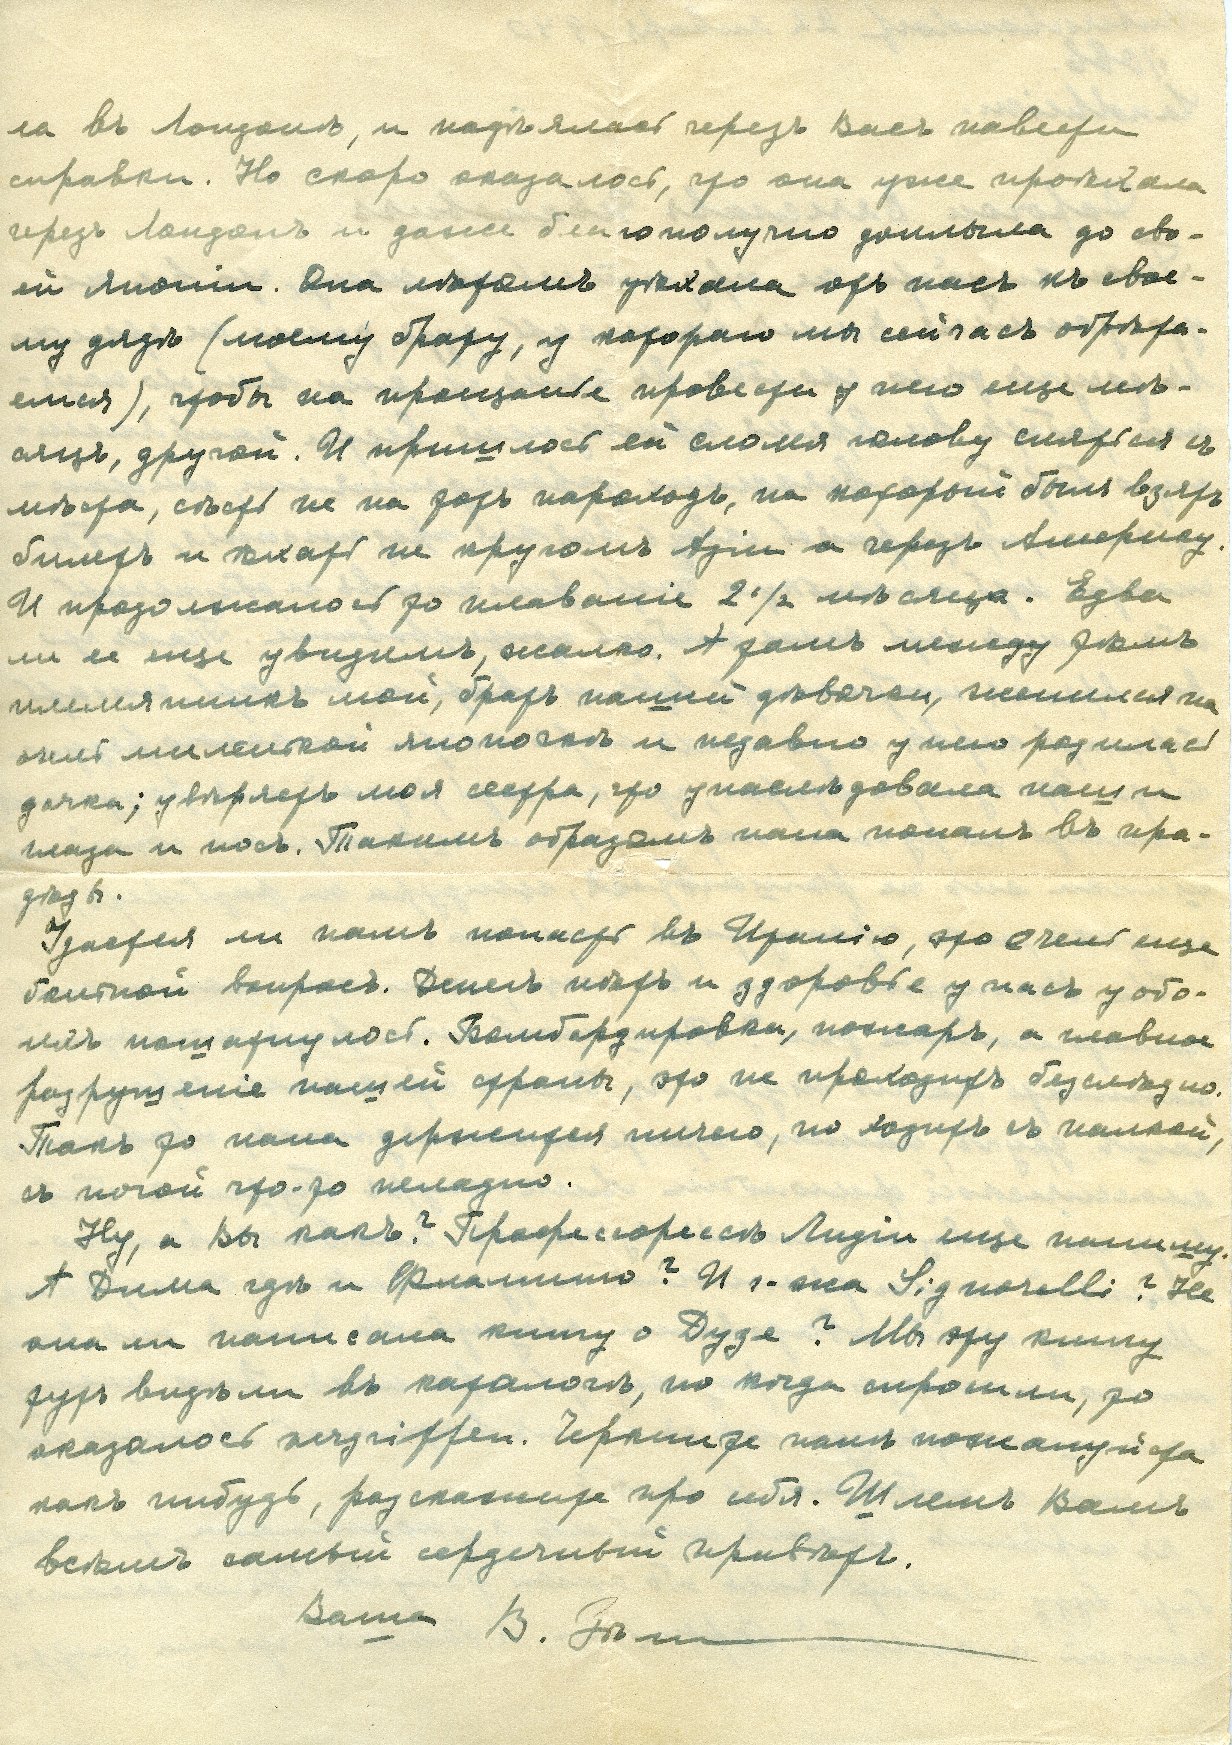 ла въ Лондонѣ, и надѣялась черезъ Васъ навести
справки. Но скоро оказалось, что она уже проѣхала
черезъ Лондонъ и даже благополучно доплыла до сво-
ей Японіи. Она лѣтомъ уѣхала отъ насъ къ свое-
му дядѣ (моему брату, у котораго мы сейчасъ обрѣта-
емся), чтобы на прощанье провести у него еще мѣ-
сяцъ, другой. И пришлось ей сломя голову сняться съ
мѣста, сѣсть не на тотъ пароходъ, на который былъ взятъ
билетъ и ѣхать не кругомъ Азіи а черезъ Америку.
И продолжалось то плаваніе 2 1/2 мѣсяца. Едва
ли ее еще увидимъ, жалко. А тамъ между тѣмъ
племянникъ мой, братъ нашей дѣвочки, женился на
очень миленькой японочкѣ и недавно у него родилась
дочка; увѣряетъ моя сестра, что унаслѣдовала наши
глаза и носъ. Такимъ образомъ папа попалъ въ пра-
дѣды.
Удастся ли намъ попасть въ Италію, это очень еще
больной вопросъ. Денегъ нѣтъ и здоровье у насъ у обо-
ихъ пошатнулось. Бомбардировки, пожаръ, а главное
разрушеніе нашей страны, это не проходитъ безслѣдно.
Такъ то папа держится ничего, но ходитъ съ палкой,
съ ногой что-то неладно.
Ну, а Вы какъ? Профессорессѣ Лидіи еще напишу.
А Дима гдѣ и Фламинго? И г-жа Signorelli? Не
она ли написала книгу о Дузе? Мы эту книгу
тутъ видѣли въ каталогѣ, но когда спросили, то
оказалось vergriffen. Черкните намъ пожалуйста
какъ нибудь, разскажите про себя. Шлемъ Вамъ
всѣмъ самый сердечный привѣтъ.
Ваша В.